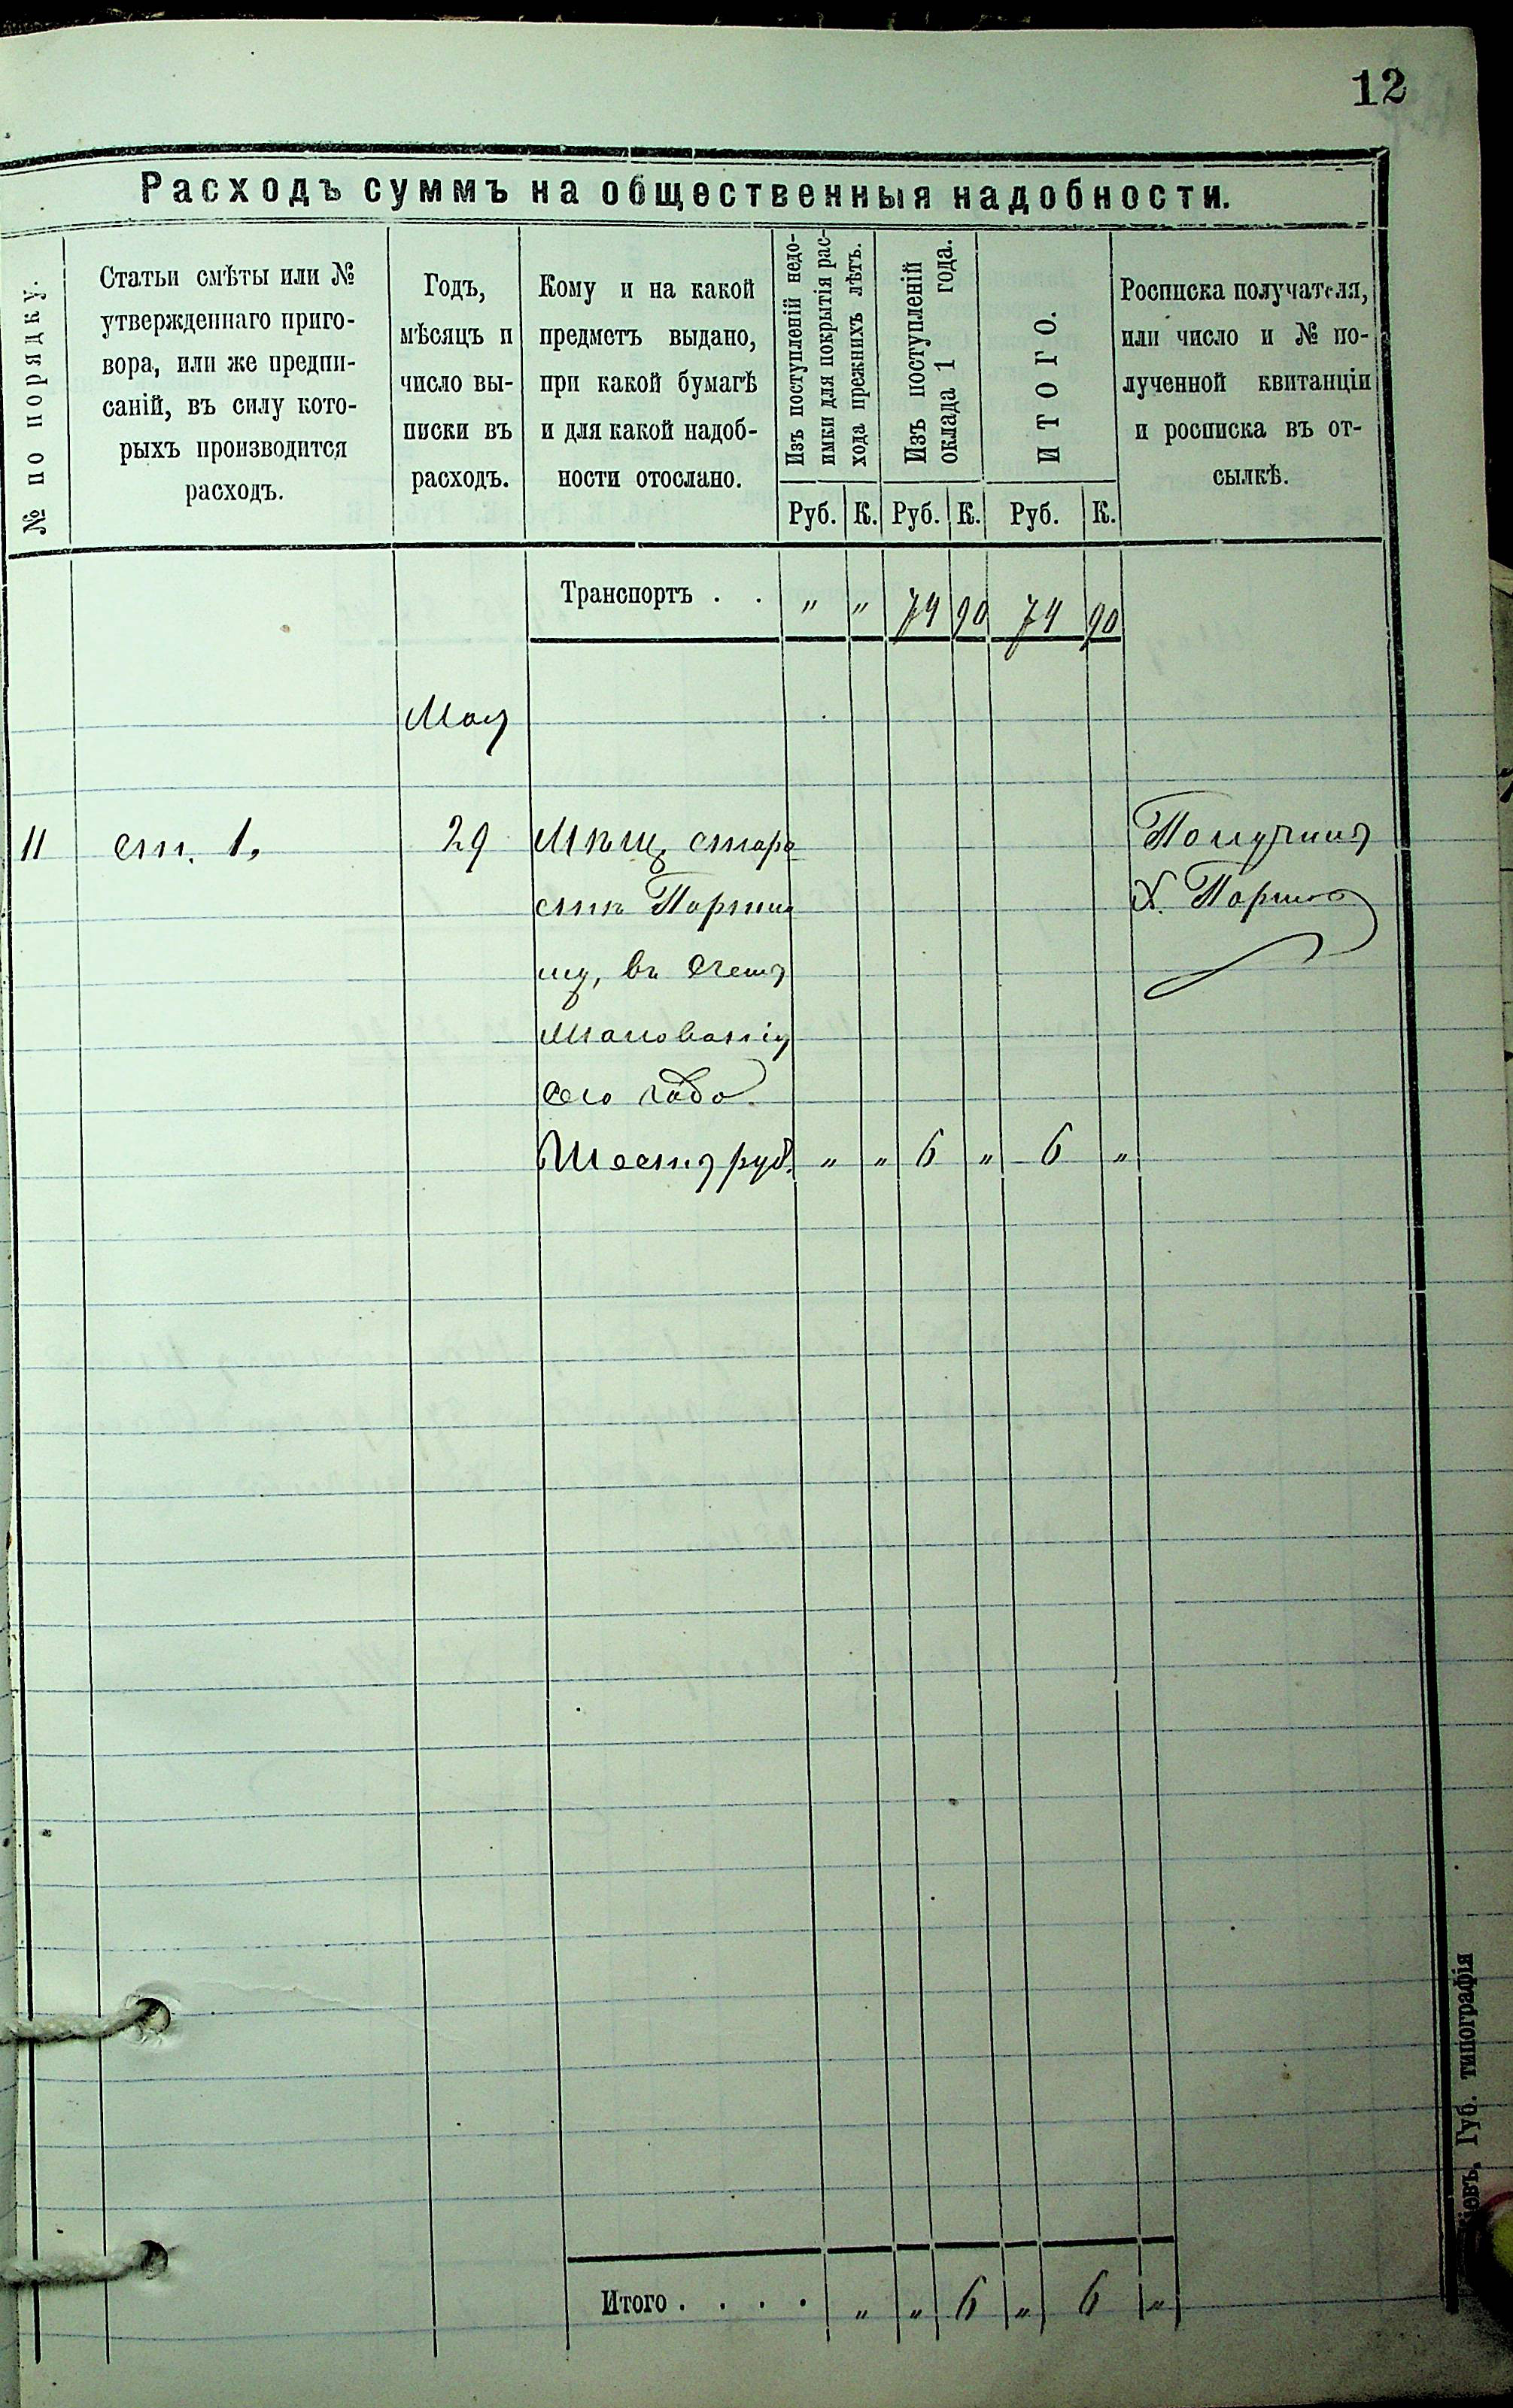 12
Расходъ суммъ на общественныя надобности.
№ по порядку.
Статьи смѣты или №
утвержденнаго приго-
вора, или же предпи-
саній, въ силу кото-
рыхъ производится
расходъ.
Годъ,
мѣсяцъ и
число вы-
писки въ
расходъ.
Кому и на какой
предметъ выдано,
при какой бумагѣ
и для какой надоб-
ности отослано.
Изъ поступленій недо-
имки для покрытія рас-
хода прежнихъ лѣтъ.
Руб. К.
Изъ поступленій
оклада 1 года.
Руб. К.
ИТОГО.
Руб. К.
Росписка получателя,
или число и № по-
лученной квитанціи
и росписка въ от-
сылкѣ.
Транспортъ . . „ „ 74 90 74 90
Мая
11 ст. 1, 29 Мѣщ. старо
стѣ
въ счетъ
жалованія
сего года
Шесть руб. „ „ 6 „ 6 „
Получилъ
Итого . . . . „ „ 6 „ 6 „
Губ. типографія